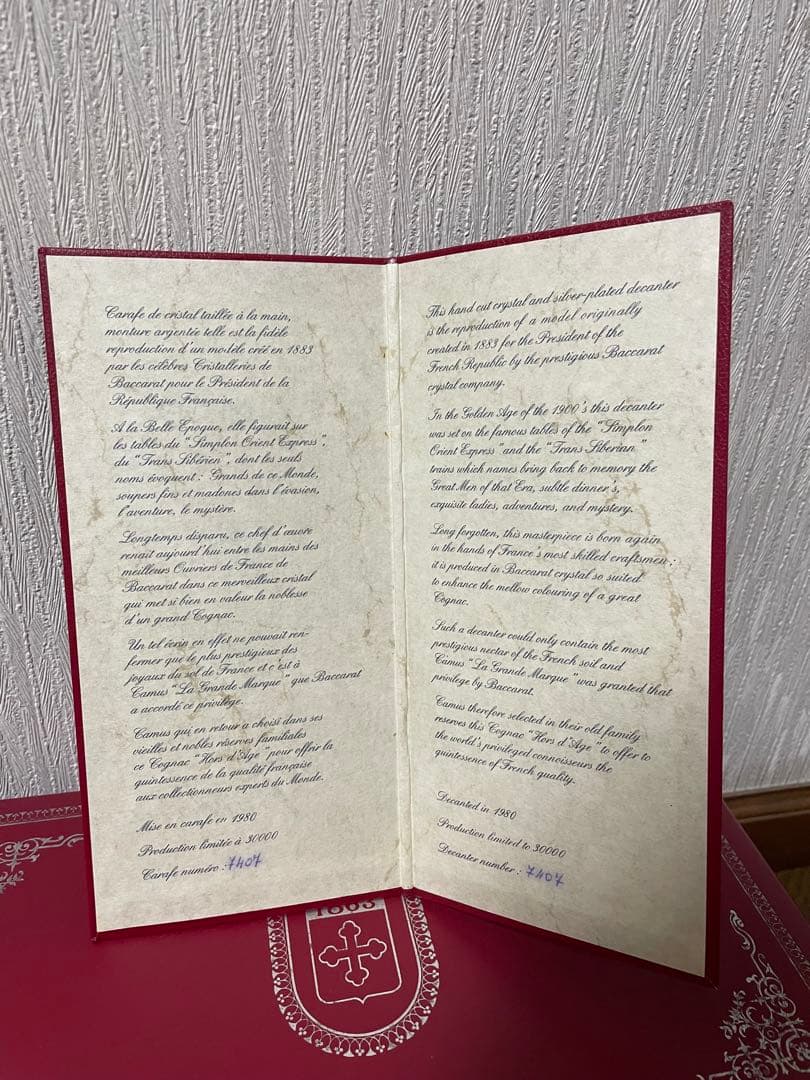 Carafe de cristal taillée à la main,
monture argentée telle est la fidèle
reproduction d'un modèle créé en 1883
par les célèbres Cristalleries de
Baccarat pour le Président de la
République Française.
A la Belle Epoque, elle figurait sur
les tables du "Simplon Orient Express",
du "Trans Sibérien", dont les seuls
noms évoquent : Grands de ce Monde,
soupers fins et madones dans l'évasion,
l'aventure, le mystère.
Longtemps disparu, ce chef d'œuvre
renait aujourd'hui entre les mains des
meilleurs Ouvriers de France de
Baccarat dans ce merveilleux cristal
qui met si bien en valeur la noblesse
d'un grand Cognac.
Un tel écrin en effet ne pouvait ren-
fermer que le plus prestigieux des
joyaux du sol de France et c'est à
Camus "La Grande Marque" que Baccarat
a accordé ce privilège.
Camus qui en retour a choisi dans ses
vieilles et nobles réserves familiales
ce Cognac "Hors d'Age" pour offrir la
quintessence de la qualité française
aux collectionneurs experts du Monde.
Mise en carafe en 1980
Production limitée à 30000
Carafe numéro : 7407
This hand cut crystal and silver-plated decanter
is the reproduction of a model originally
created in 1883 for the President of the
French Republic by the prestigious Baccarat
crystal company.
In the Golden Age of the 1900's this decanter
was set on the famous tables of the "Simplon
Orient Express" and the "Trans Siberian"
trains which names bring back to memory the
Great Men of that Era, subtle dinner's,
exquisite ladies, adventures, and mystery.
Long forgotten, this masterpiece is born again
in the hands of France's most skilled craftsmen ;
it is produced in Baccarat crystal so suited
to enhance the mellow colouring of a great
Cognac.
Such a decanter could only contain the most
prestigious nectar of the French soil and
Camus "La Grande Marque" was granted that
privilege by Baccarat.
Camus therefore selected in their old family
reserves this Cognac "Hors d'Age" to offer to
the world's privileged connoisseurs the
quintessence of French quality.
Decanted in 1980
Production limited to 30000
Decanter number : 7407
1863